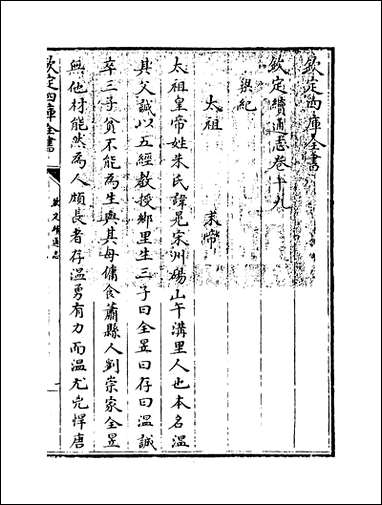 欽定四庫全書
欽定續通志卷十九
梁紀
太祖 末帝
太祖皇帝姓朱氏諱晃宋州碭山午溝里人也本名温
其父誠以五經教授鄉里生三子曰全昱曰存曰温誠
卒三子貧不能為生與其母傭食蕭縣人劉崇家全昱
無他材能然為人頗長者存温勇有力而温尤兇悍唐
欽定四庫全書
欽定續通志